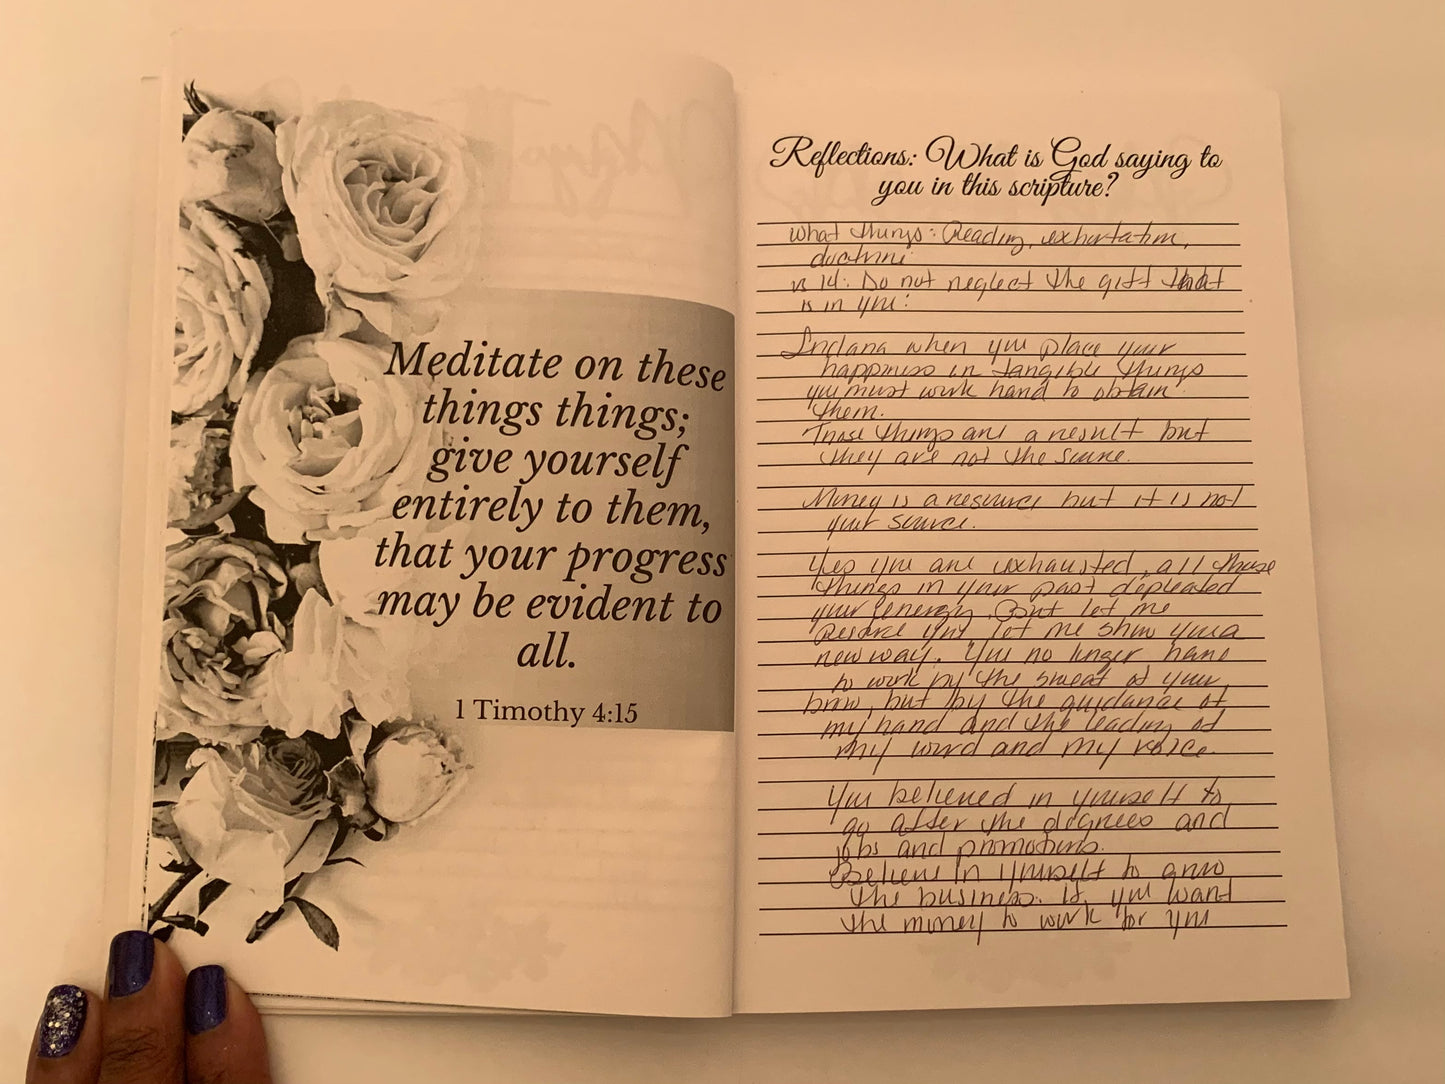 Meditate on these
things things;
give yourself
entirely to them,
that your progress
may be evident to
all.
1 Timothy 4:15
Reflections: What is God saying to
you in this scripture?
What things: Reading, exhortation,
doctrine.
vs 14: Do not neglect the gift that
is in you:
Indiana when you place your
happiness in tangible things
you must work hard to obtain
them.
Those things are a result but
they are not the source.
Money is a resource but it is not
your source.
Yes you are exhausted, all those
things in your past depleated
your energy. But let me
restore you, let me show you a
new way. You no longer have
to work by the sweat of your
brow, but by the guidance of
my hand and the leading of
my word and my voice.
You believed in yourself to
go after the degrees and
jobs and promotions.
Believe in yourself to grow
the business. If you want
the money to work for you